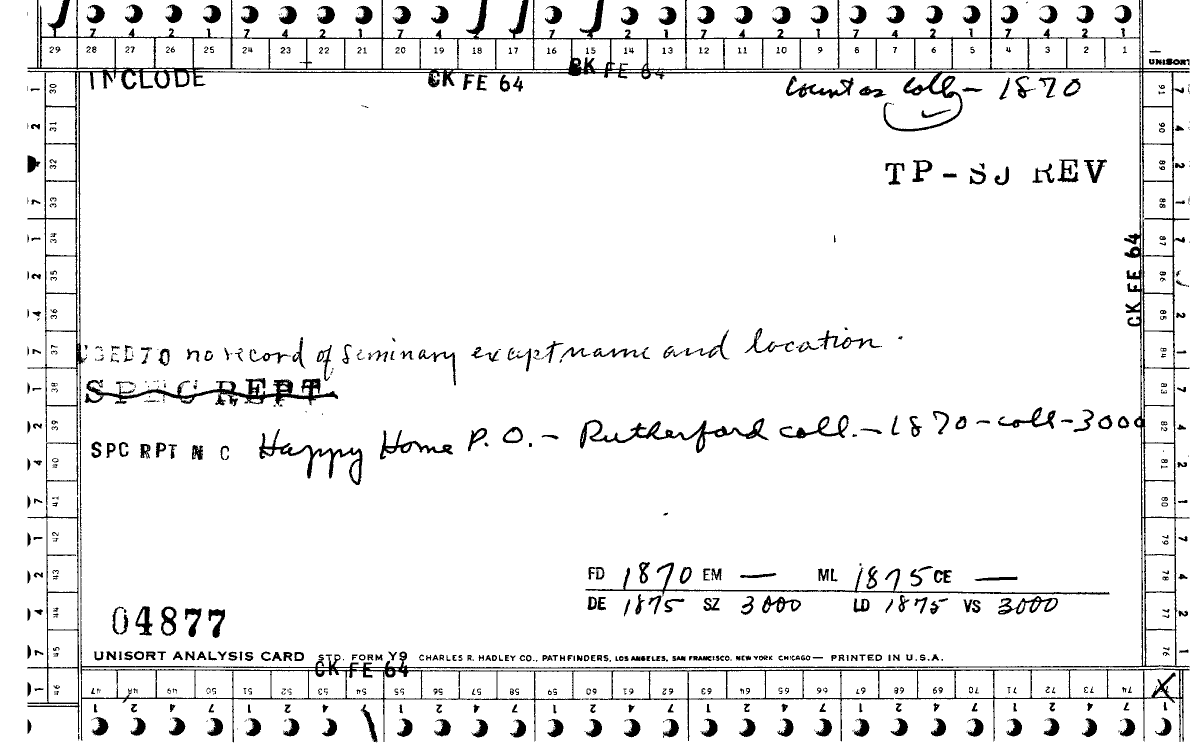 7 4 2 1 7 4 2 1 7 4 2 1 7 4 2 1 7 4 2 1 7 4 2 1 7 4 2 1
29 28 27 26 25 24 23 22 21 20 19 18 17 16 15 14 13 12 11 10 9 8 7 6 5 4 3 2 1
UNISORT
INCLUDE CK FE 64 CK FE 64 Count as coll - 1870
TP-SJ REV
CK FE 64
USED70 no record of seminary except name and location.
SPEC REPT
SPC RPT N C Happy Home P.O. - Rutherford coll. - 1870 - coll - 3000
FD 1870 EM — ML 1875 CE —
DE 1875 SZ 3000 LD 1875 VS 3000
04877
UNISORT ANALYSIS CARD STD. FORM Y9 CHARLES R. HADLEY CO., PATHFINDERS, LOS ANGELES, SAN FRANCISCO, NEW YORK CHICAGO — PRINTED IN U.S.A.
CK FE 64
30 31 32 33 34 35 36 37 38 39 40 41 42 43 44 45 46
91 90 89 88 87 86 85 84 83 82 81 80 79 78 77 76
47 48 49 50 51 52 53 54 55 56 57 58 59 60 61 62 63 64 65 66 67 68 69 70 71 72 73 74